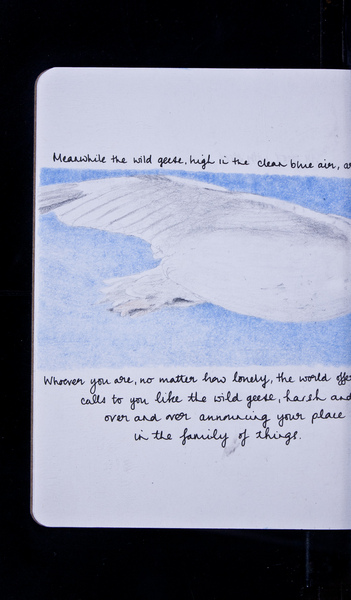 Meanwhile the wild geese, high in the clean blue air,
Whoever you are, no matter how lonely, the world
calls to you like the wild geese, harsh and
over and over announcing your place
in the family of things.